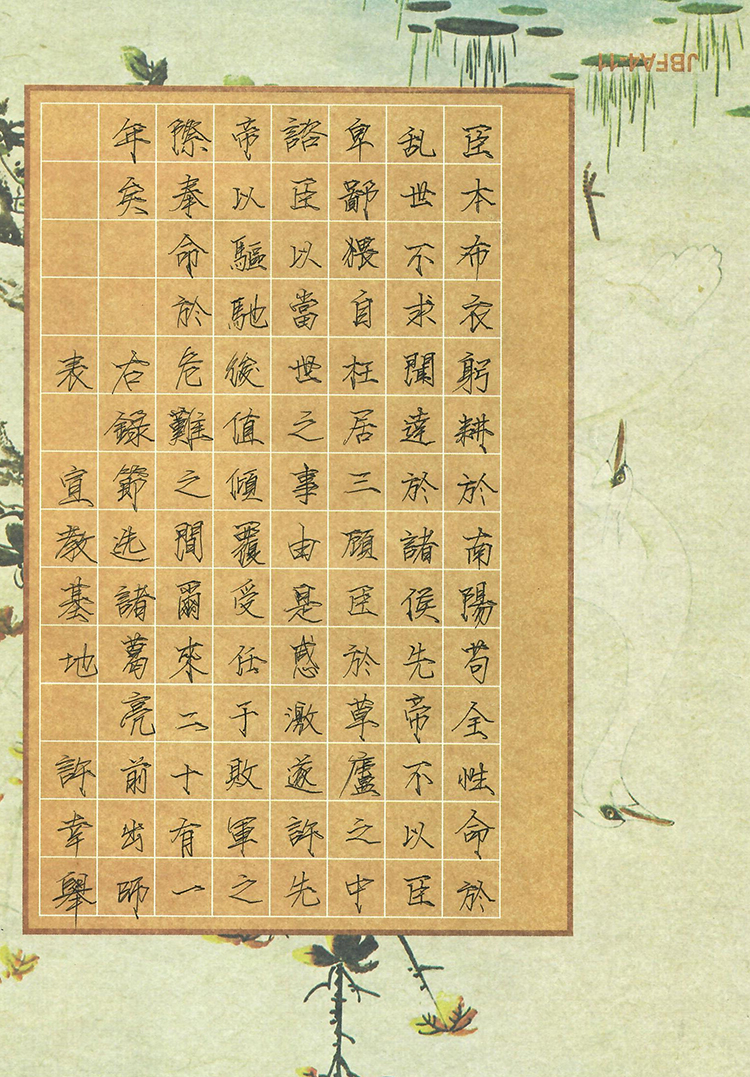 臣本布衣躬耕於南陽苟全性命於
乱世不求聞達於諸侯先帝不以臣
卑鄙猥自枉居三顧臣於草廬之中
諮臣以當世之事由是感激遂許先
帝以驅馳後值傾覆受任于敗軍之
際奉命於危難之間爾來二十有一
年矣 右錄節选諸葛亮前出師
表 宣教基地 許幸舉
JBFA4-11